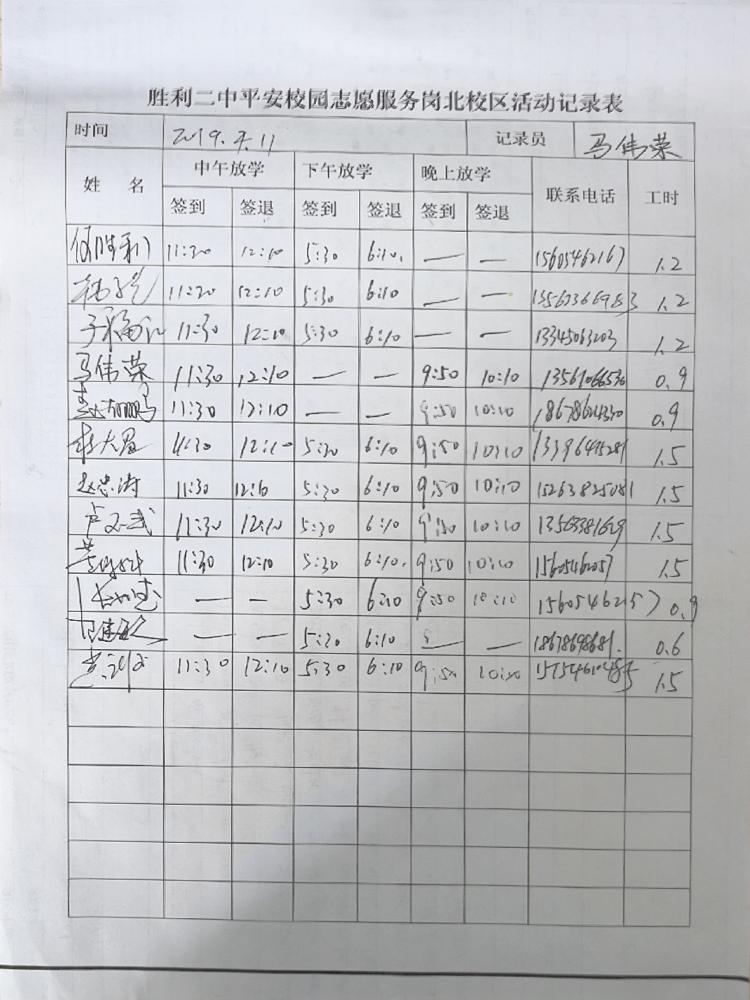 胜利二中平安校园志愿服务岗北校区活动记录表
时间 2019. 11 记录员 马伟荣
姓 名 中午放学 下午放学 晚上放学 联系电话 工时
签到 签退 签到 签退 签到 签退
胜利 11:30 12:10 5:30 6:10 — — 15605462167 1.2
11:30 12:10 5:30 6:10 — — 13562366983 1.2
11:30 12:10 5:30 6:10 — — 13345063203 1.2
马伟荣 11:30 12:10 — — 9:50 10:10 13561066530 0.9
11:30 12:10 — — 9:50 10:10 0.9
11:30 12:10 5:30 6:10 9:50 10:10 1.5
赵忠涛 11:30 12:10 5:30 6:10 9:50 10:10 15263825081 1.5
卢 武 11:30 12:10 5:30 6:10 9:50 10:10 1.5
11:30 12:10 5:30 6:10 9:50 10:10 1.5
— — 5:30 6:10 9:50 10:10 15605462157 0.9
— — 5:30 6:10 — — 18678698681 0.6
11:30 12:10 5:30 6:10 9:50 10:10 1.5